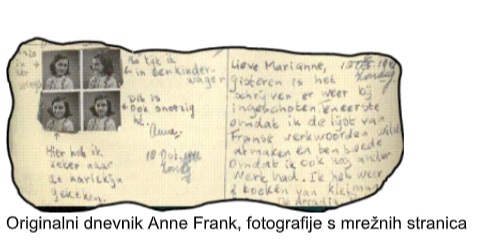 in den kinder-
wagen
Dit is
ook snoezig
Anne.
Hier heb ik
zeker naar
de harlekijn
gekeken.
10 Oct. 1942
Lieve Marianne,
gisteren is het
schrijven er weer bij
ingeschoten, eneerste
omdat ik de lijst van
Franse werkwoorden wilde
afmaken en ten tweede
omdat ik ook nog ander
werk had. Ik heb weer
2 boeken van kleiman
Originalni dnevnik Anne Frank, fotografije s mrežnih stranica